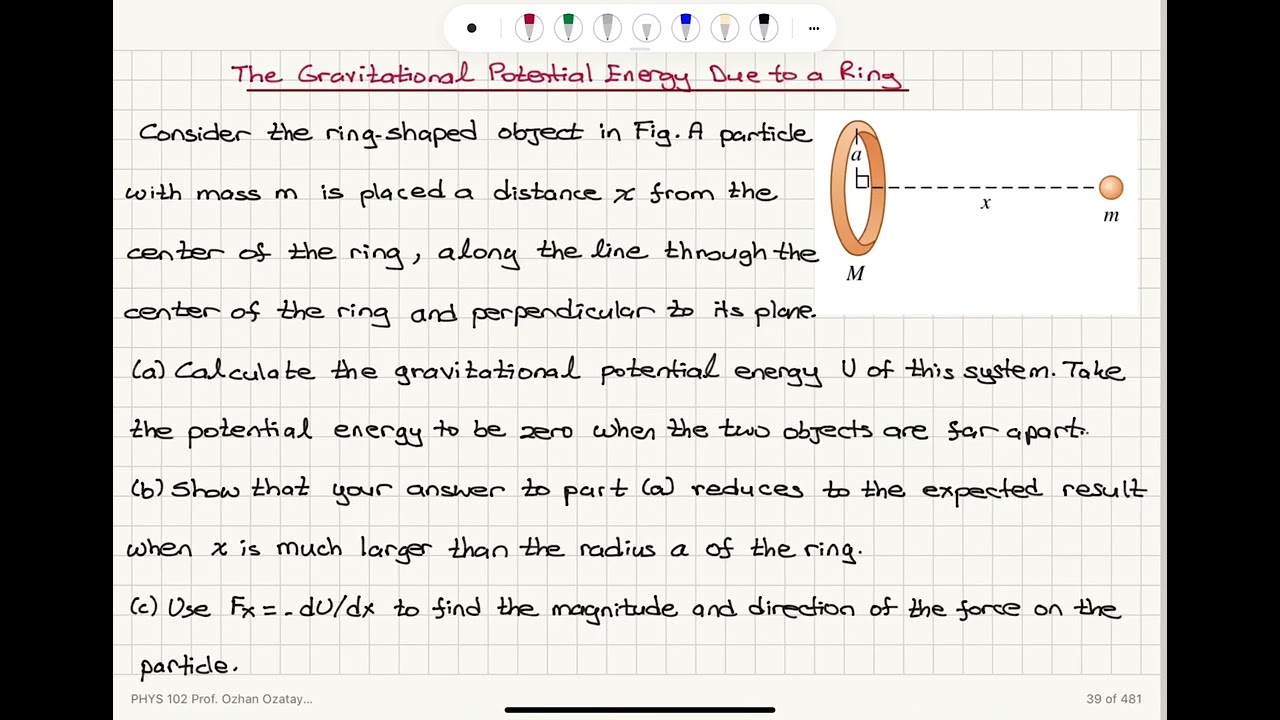 The Gravitational Potential Energy Due to a Ring
Consider the ring-shaped object in Fig. A particle
with mass m is placed a distance x from the
center of the ring, along the line through the
center of the ring and perpendicular to its plane.
a
x
m
M
(a) Calculate the gravitational potential energy U of this system. Take
the potential energy to be zero when the two objects are far apart.
(b) Show that your answer to part (a) reduces to the expected result
when x is much larger than the radius a of the ring.
(c) Use Fx = - dU/dx to find the magnitude and direction of the force on the
particle.
PHYS 102 Prof. Ozhan Ozatay...
39 of 481